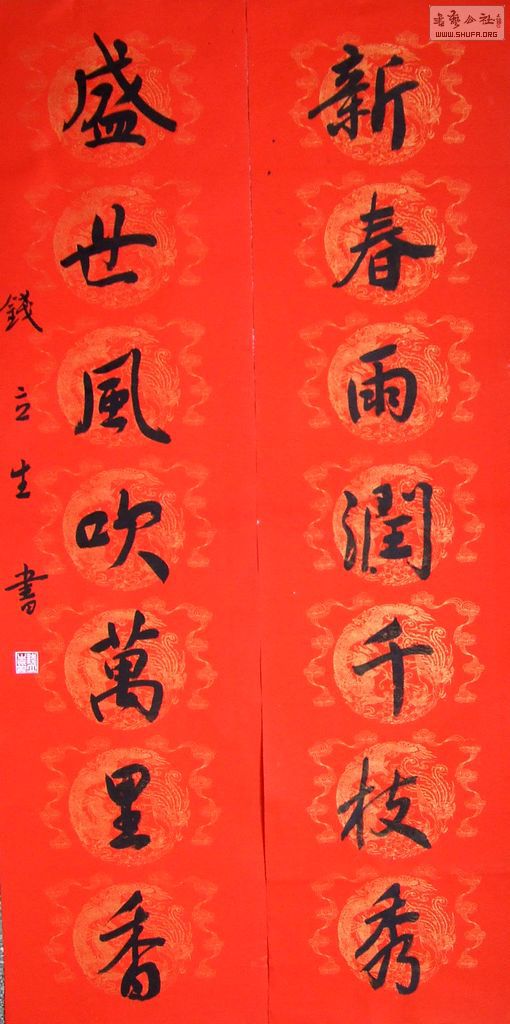 新春雨潤千枝秀
盛世風吹萬里香
錢立生書
書藝公社
WWW.SHUFA.ORG